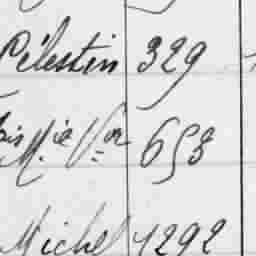 Célestin 329
ois M.ie Vor 653
Michel 1292